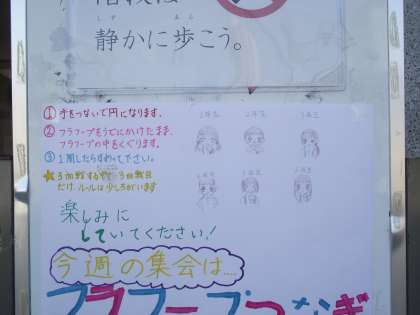 階段は
静かに歩こう。
しず
ある
①手をつないで円になります。
②フラフープをうでにかけたまま、
フラフープの中をくぐります。
③1周したらすわって下さい。
★3回戦するけど3回戦目
だけ、ルールは少しちがいます
1年生
2年生
3年生
楽しみに
していてください!
今週の集会は…
フラフープつなぎ